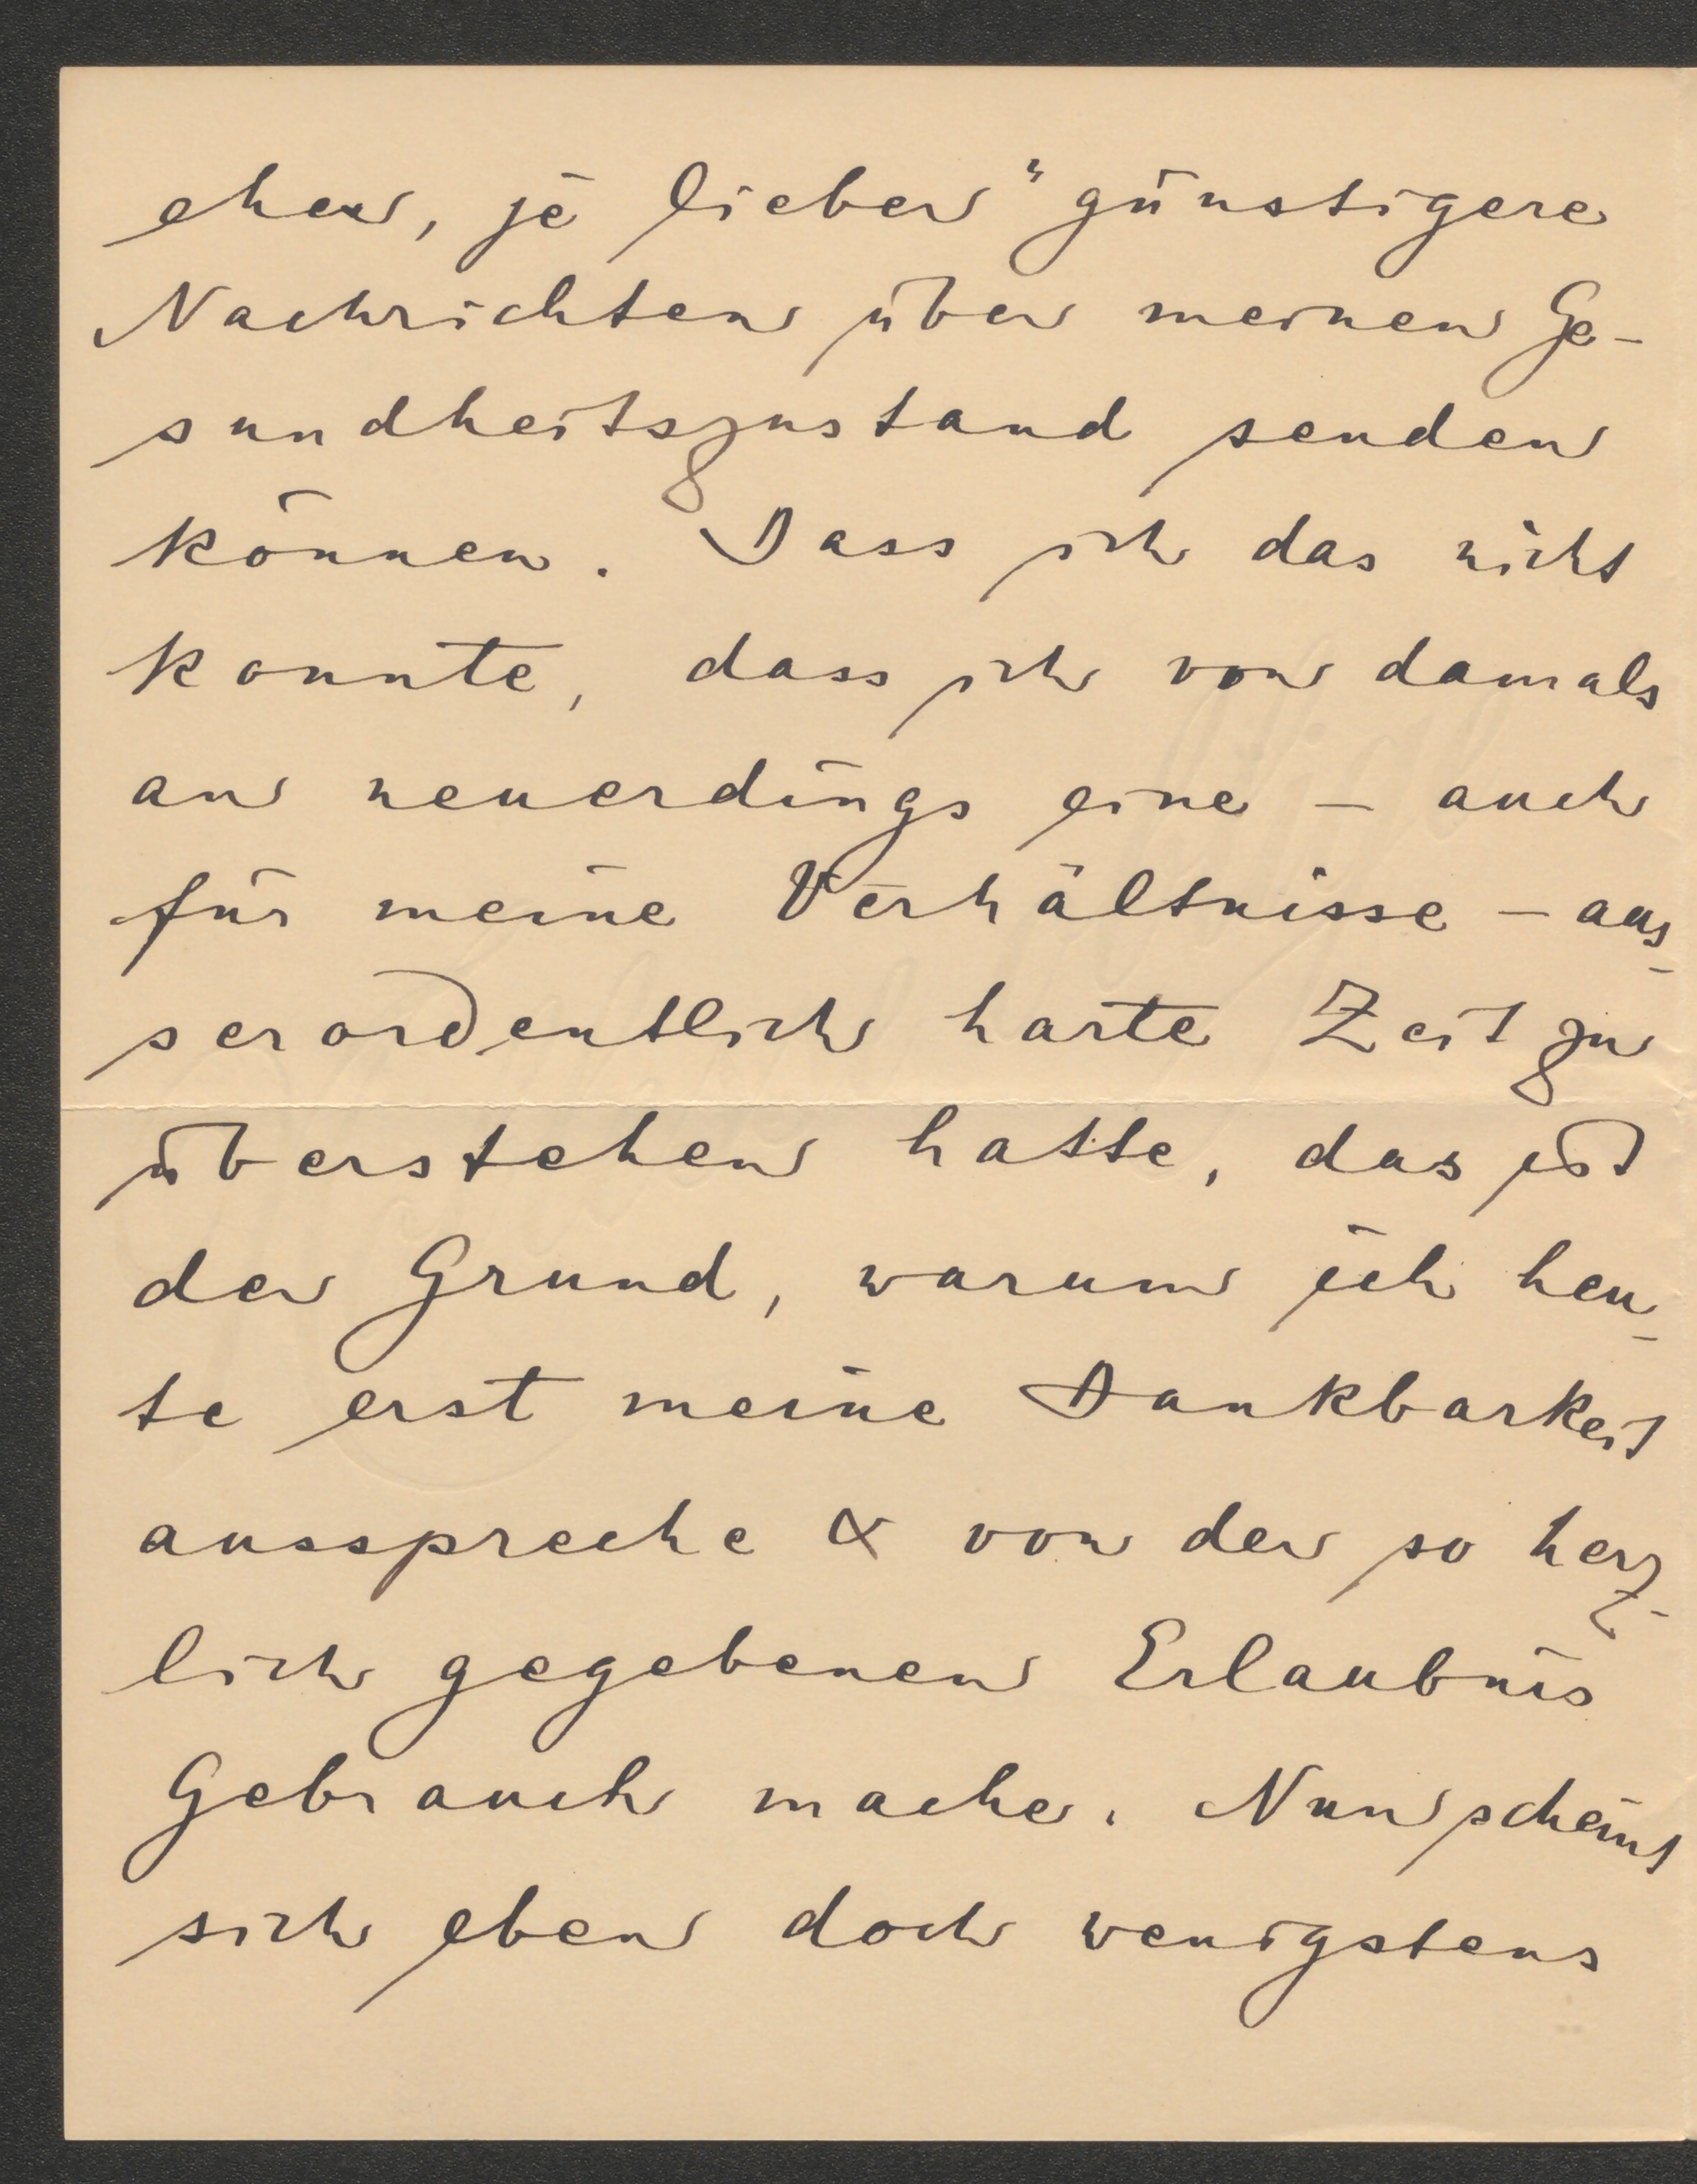 eher, je lieber" günstigere
Nachrichten über meinen Ge-
sundheitszustand senden
können. Dass ich das nicht
konnte, dass ich von damals
an neuerdings eine – auch
für meine Verhältnisse – aus-
serordentlich harte Zeit zu
überstehen hatte, das ist
der Grund, warum ich heu-
te erst meine Dankbarkeit
ausspreche & von der so herz-
lich gegebenen Erlaubnis
Gebrauch mache. Nun scheint
sich eben doch wenigstens